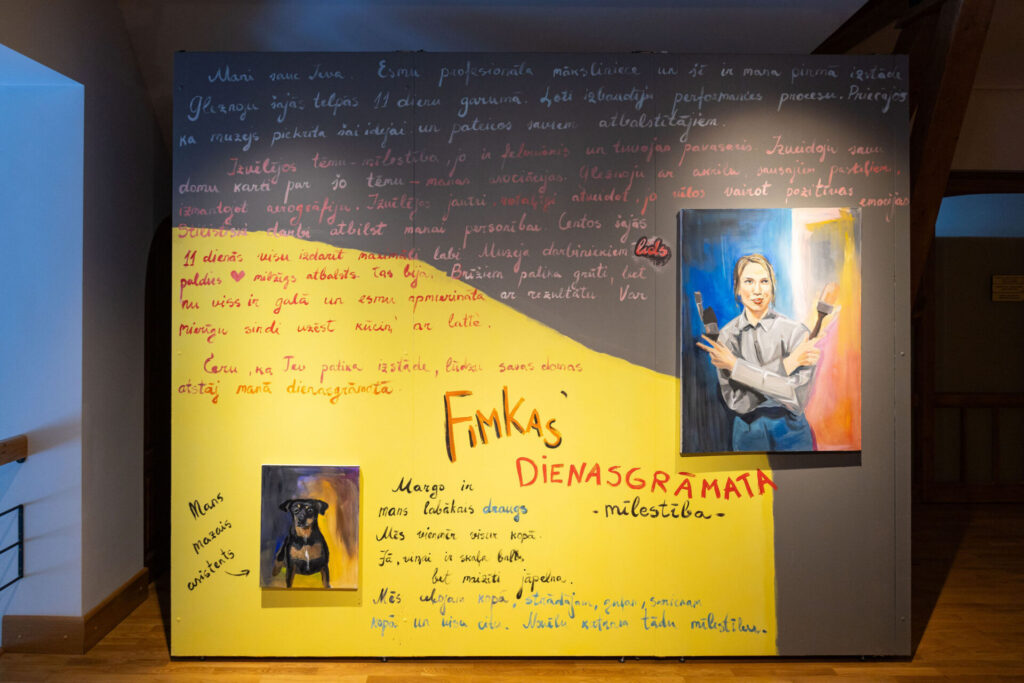 Mani sauc Ieva. Esmu profesionāla māksliniece un šī ir mana pirmā izstāde
Gleznoju šajās telpās 11 dienu garumā. Ļoti izbaudīju performances procesu. Priecājos
ka muzejs piekrita šai idejai un pateicos saviem atbalstītājiem.
Izvēlējos tēmu - mīlestība, jo ir februāris un tuvojas pavasaris. Izveidoju savu
domu karti par šo tēmu - manas asociācijas. Gleznoju ar akrilu, sausajiem pasteļiem,
izmantojot aerogrāfiju. Izvēlējos jautri, rotaļīgi atveidot, jo vēlos vairot pozitīvas emocijas
darbi atbilst manai personībai. Centos šajās
11 dienās visu izdarīt maksimāli labi. Muzeja darbiniekiem liels
paldies ♥ milzīgs atbalsts. Tas bija. Brīžiem palika grūti, bet
nu viss ir galā un esmu apmierināta ar rezultātu. Var
mierīgu sirdi uzēst kūciņ' ar latte.
Ceru, ka Tev patika izstāde, lūdzu savas domas
atstāj manā dienasgrāmatā.
FIMKAS
DIENASGRĀMATA
- mīlestība -
Mans
mazais
asistents
Margo ir
mans labākais draugs
Mēs vienmēr visur kopā.
Jā, viņai ir skaļa balss,
bet maizīti jāpelna.
Mēs ceļojam kopā, strādājam, guļam,
kopā un visu citu. Novēlu katram tādu mīlestību.